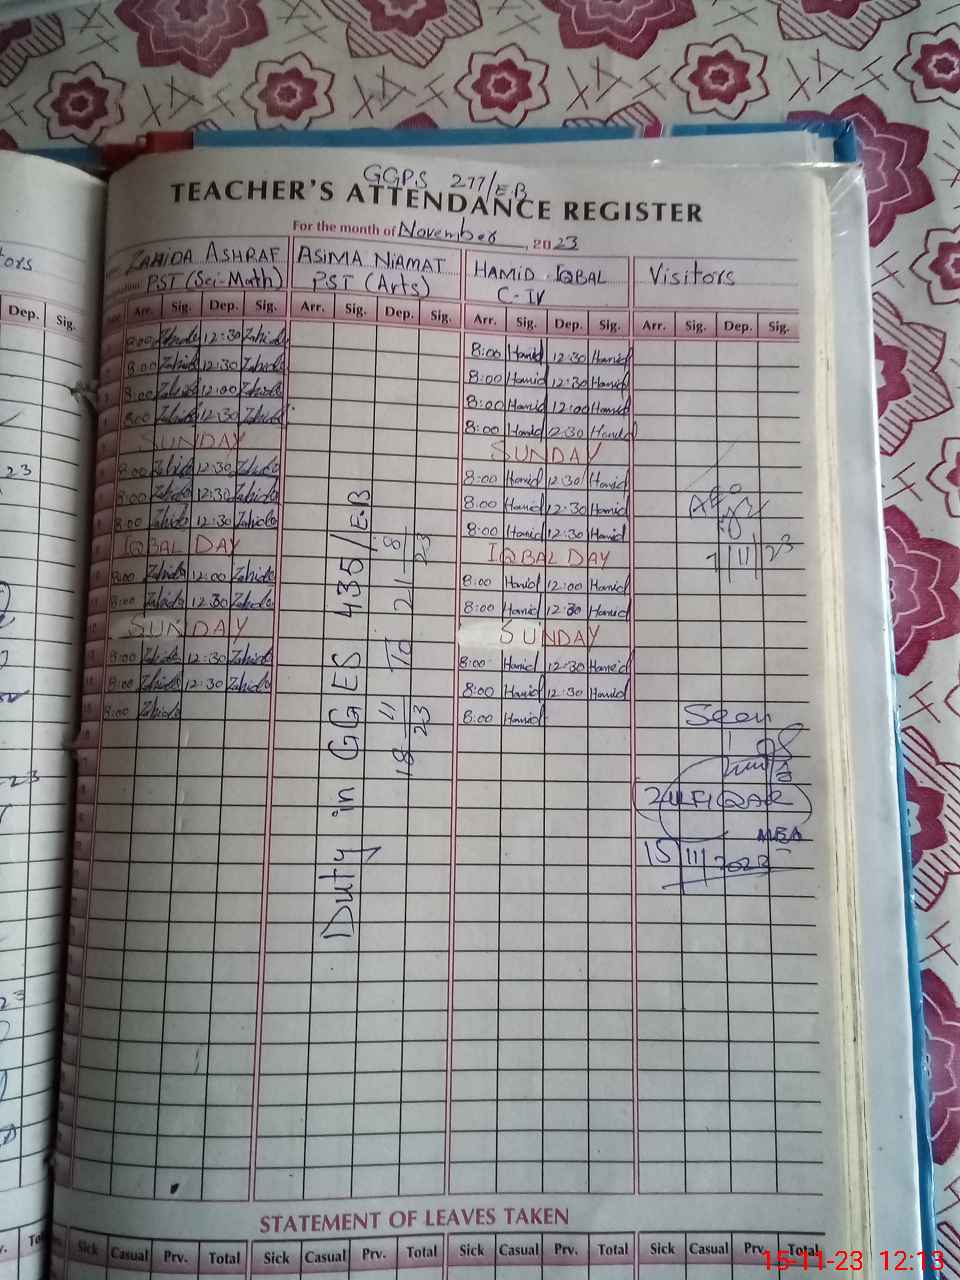 GGPS 277/E.B
TEACHER'S ATTENDANCE REGISTER
For the month of November, 2023
ZAHIDA ASHRAF ASIMA NIAMAT HAMID IQBAL Visitors
PST (Sci-Math) PST (Arts) C-IV
Dep. Sig. Arr. Sig. Dep. Sig. Arr. Sig. Dep. Sig. Arr. Sig. Dep. Sig. Arr. Sig. Dep. Sig.
8:00 Zahida 12:30 Zahida 8:00 Hamid 12:30 Hamid
8:00 Zahida 12:30 Zahida 8:00 Hamid 12:30 Hamid
8:00 Zahida 12:00 Zahida 8:00 Hamid 12:00 Hamid
8:00 Zahida 12:30 Zahida 8:00 Hamid 12:30 Hamid
SUNDAY SUNDAY
8:00 Zahida 12:30 Zahida 8:00 Hamid 12:30 Hamid
8:00 Zahida 12:30 Zahida 8:00 Hamid 12:30 Hamid
8:00 Zahida 12:30 Zahida 8:00 Hamid 12:30 Hamid
IQBAL DAY IQBAL DAY
8:00 Zahida 12:00 Zahida 8:00 Hamid 12:00 Hamid
8:00 Zahida 12:30 Zahida 8:00 Hamid 12:30 Hamid
SUNDAY SUNDAY
8:00 Zahida 12:30 Zahida 8:00 Hamid 12:30 Hamid
8:00 Zahida 12:30 Zahida 8:00 Hamid 12:30 Hamid
8:00 Zahida 8:00 Hamid
Duty in GGES 435/EB
AEO
7/11/23
Seen
ZULFIQAR
MEA
15/11/2023
STATEMENT OF LEAVES TAKEN
Sick Casual Prv. Total Sick Casual Prv. Total Sick Casual Prv. Total Sick Casual Prv. Total
15-11-23 12:13